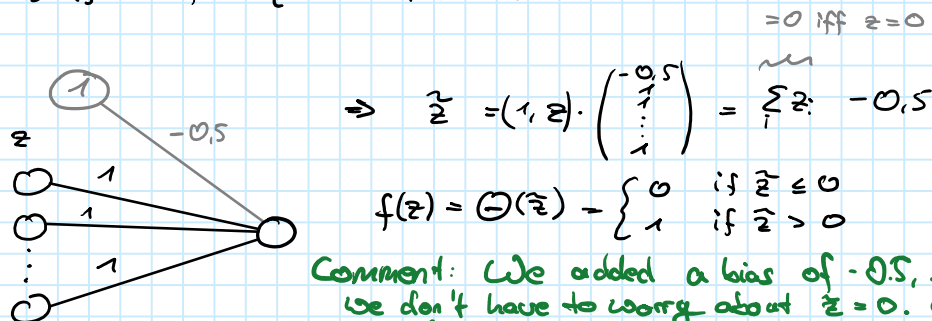 =0 iff z=0
1
⇒ z̃ =(1, z)· (-0,5 1 1 ⋮ 1) = Σ_i z_i -0,5
z
-0,5
1
1
⋮
1
f(z) = Θ(z̃) = { 0 if z̃ ≤ 0
1 if z̃ > 0
Comment: We added a bias of -0.5,
we don't have to worry about z̃ = 0.